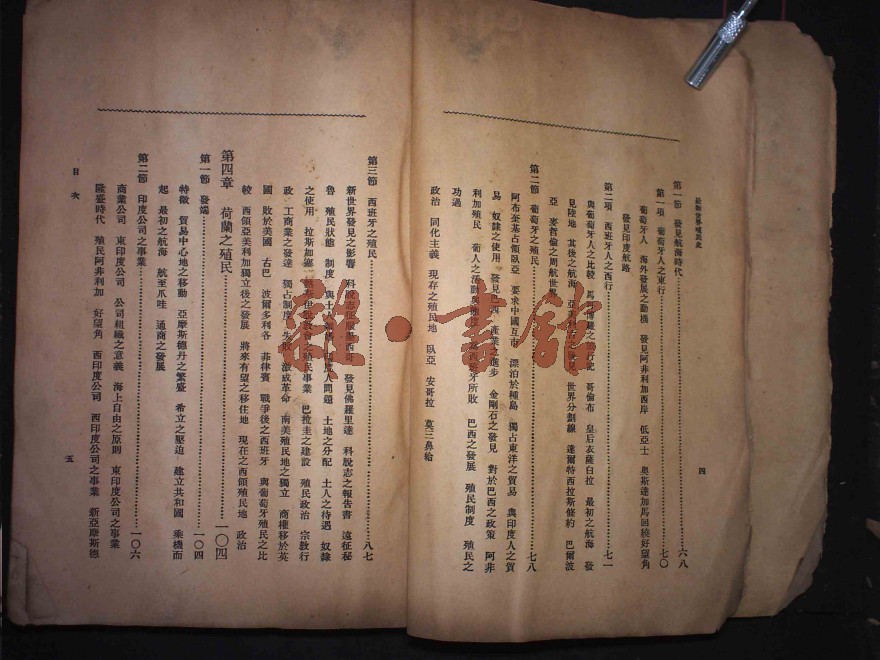 最新世界殖民史
四
第一節 發見航海時代⋯⋯六八
第一項 葡萄牙人之東行⋯⋯七〇
葡萄牙人 海外發展之動機 發見阿非利加西岸 低亞士 奧斯達加馬回繞好望角
發見印度航路
第二項 西班牙人之西行⋯⋯七一
與葡萄牙人之比較 馬 博羅之 行記 哥倫布 皇后衣薩白拉 最初之航海 發
見陸地 其後之航海 亞美利加之發見 世界分劃線 達爾特西拉斯條約 巴爾波
亞 麥哲倫之周航世界
第二節 葡萄牙之殖民⋯⋯七八
阿布奎基占領臥亞 要求中國互市 漂泊於種島 獨占東洋之貿易 與印度人之貿
易 奴隸之使用 發見巴西 產業之進步 金剛石之發見 對於巴西之政策 阿非
利加殖民 葡人之活動與 西班牙所敗 巴西之發展 殖民制度 殖民之
功過
政治 同化主義 現存之殖民地 臥亞 安哥拉 莫三鼻給
第三節 西班牙之殖民⋯⋯八七
新世界發見之影響 科脫志征服墨西哥 發見佛羅里達 科脫志之報告書 遠征秘
魯 殖民狀態 制度 與土人 印度人問題 土地之分配 土人之待遇 奴隸
之使用 拉斯加塞 教會之殖民事業 巴拉圭之建設 殖民政治 宗教行
政 工商業之發達 獨占制度 失敗 激成革命 南美殖民地之獨立 商權移於英
國 敗於美國 古巴 波爾多利各 菲律賓 戰爭後之西班牙 與葡萄牙殖民之比
較 西領亞美利加獨立後之發展 將來有望之移住地 現在之西領殖民地 政治
第四章 荷蘭之殖民⋯⋯一〇四
第一節 發端⋯⋯一〇四
特徵 貿易中心地之移動 亞摩斯德丹之繁盛 希立之壓迫 建立共和國 乘機而
起 最初之航海 航至爪哇 通商之發展
第二節 印度公司之事業⋯⋯一〇六
商業公司 東印度公司 公司組織之意義 海上自由之原則 東印度公司之事業
隆盛時代 殖民阿非利加 好望角 西印度公司 西印度公司之事業 新亞摩斯德
目次
五
莊·書館